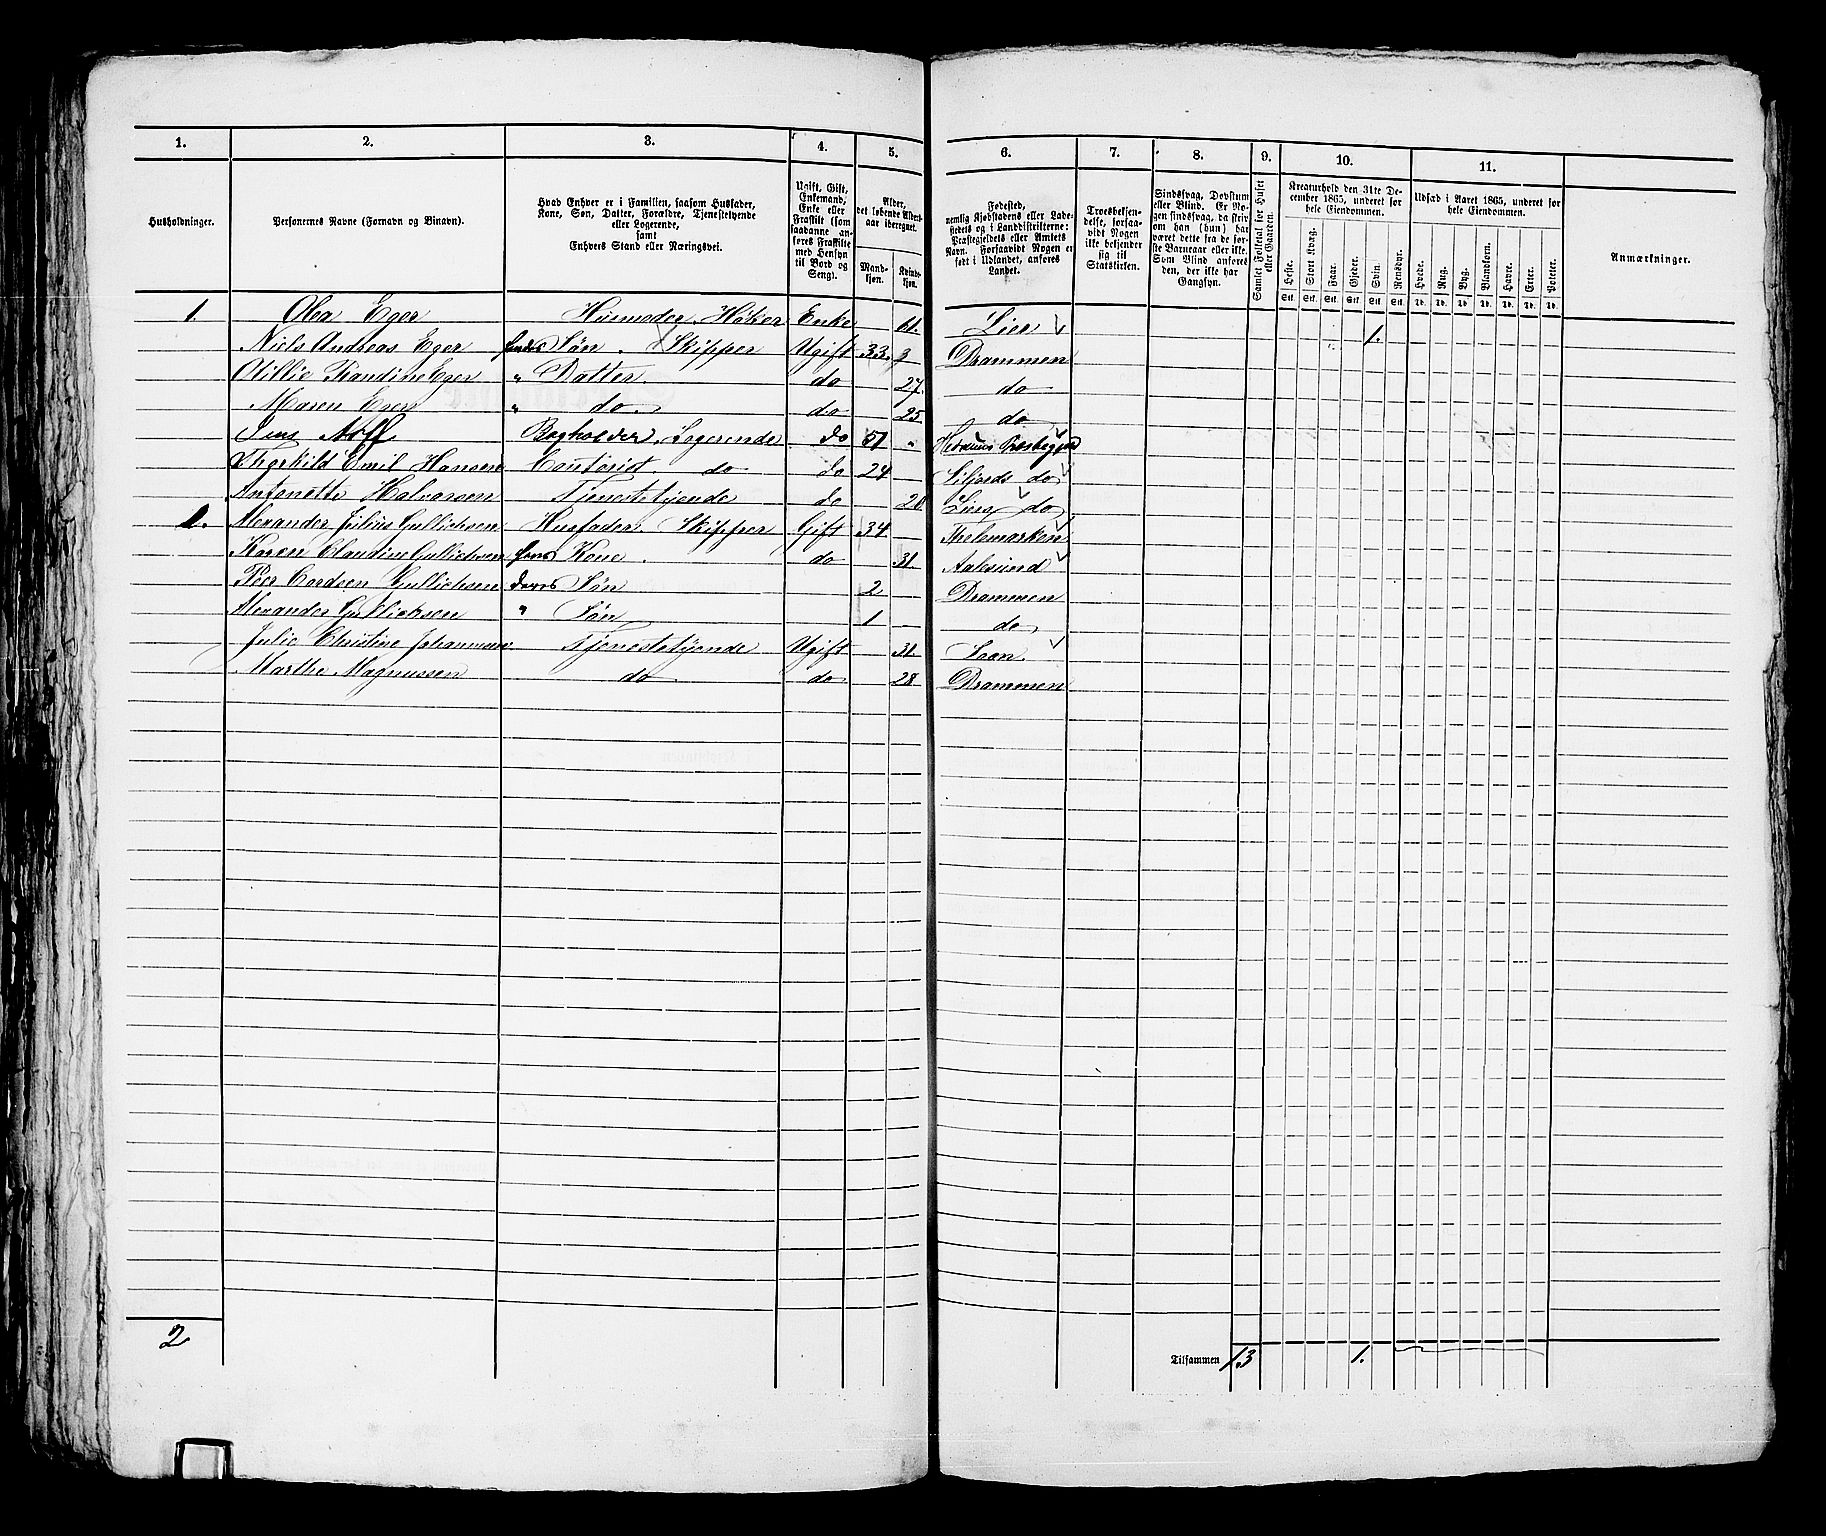 1. 2. 3. 4. 5. 6. 7. 8. 9. 10. 11.
Husholdninger.
Personernes Navne (Fornavn og Binavn).
Hvad Enhver er i Familien, saasom Husfader,
Kone, Søn, Datter, Forældre, Tjenestetyende
eller Logerende,
samt
Enhvers Stand eller Næringsvei.
Ugift, Gift,
Enkemand,
Enke eller
Fraskilt (som
saadanne an-
føres Fraskilte
med Hensyn
til Bord og
Seng).
Alder,
det løbende Alders-
aar iberegnet.
Mand-
kjøn.
Kvinde-
kjøn.
Fødested,
nemlig Kjøbstadens eller Lade-
stedets og i Landdistrikterne:
Præstegjeldets eller Amtets
Navn. Forsaavidt Nogen er
født i Udlandet, anføres
Landet.
Troesbekjen-
delse, forsaa-
vidt Nogen
ikke bekjender
sig til
Statskirken.
Sindssvag, Døvstum
eller Blind. Er No-
gen sindssvag, da skriv
om han (hun) har
været dette fra de før-
ste Barneaar eller ikke.
Som Blind anføres
den, der ikke har
Gangsyn.
Samlet Folketal for Huset
eller Gaarden.
Kreaturhold den 31te De-
cember 1865, underet for
hele Eiendommen.
Heste. Stort Kvæg. Faar. Gjeder. Svin. Rensdyr.
Stk. Stk. Stk. Stk. Stk. Stk.
Udsæd i Aaret 1865, underet for
hele Eiendommen.
Hvede. Rug. Byg. Blandkorn. Havre. Erter. Poteter.
Td. Td. Td. Td. Td. Td. Td.
Anmærkninger.
1. Olea Eger Husmoder, Høker Enke 61. Lier 1.
Niels Andreas Eger hendes Søn. Skipper Ugift 33. Drammen
Kandine Eger " Datter. do 27 do
Maren Eger " do. do 25 do
Jens Bogholder, Logerende do 51 "
Emil Hansen Contorist. do do 24 do
Antonette Halvorsen Tjenestetyende do do
1. Alexander Julius Gullichsen Husfader. Skipper Gift 34 Thelemarken
Karen Claudine Gullichsen hans Kone. do 31 Aalesund
Peer Cordsen Gullichsen deres Søn 2 Drammen
Alexander Gullichsen " Søn 1 do
Julie Christine Johannesen Tjenestetyende Ugift 31.
Marthe Magnussen do do 28 Drammen
2 Tilsammen 13 1.